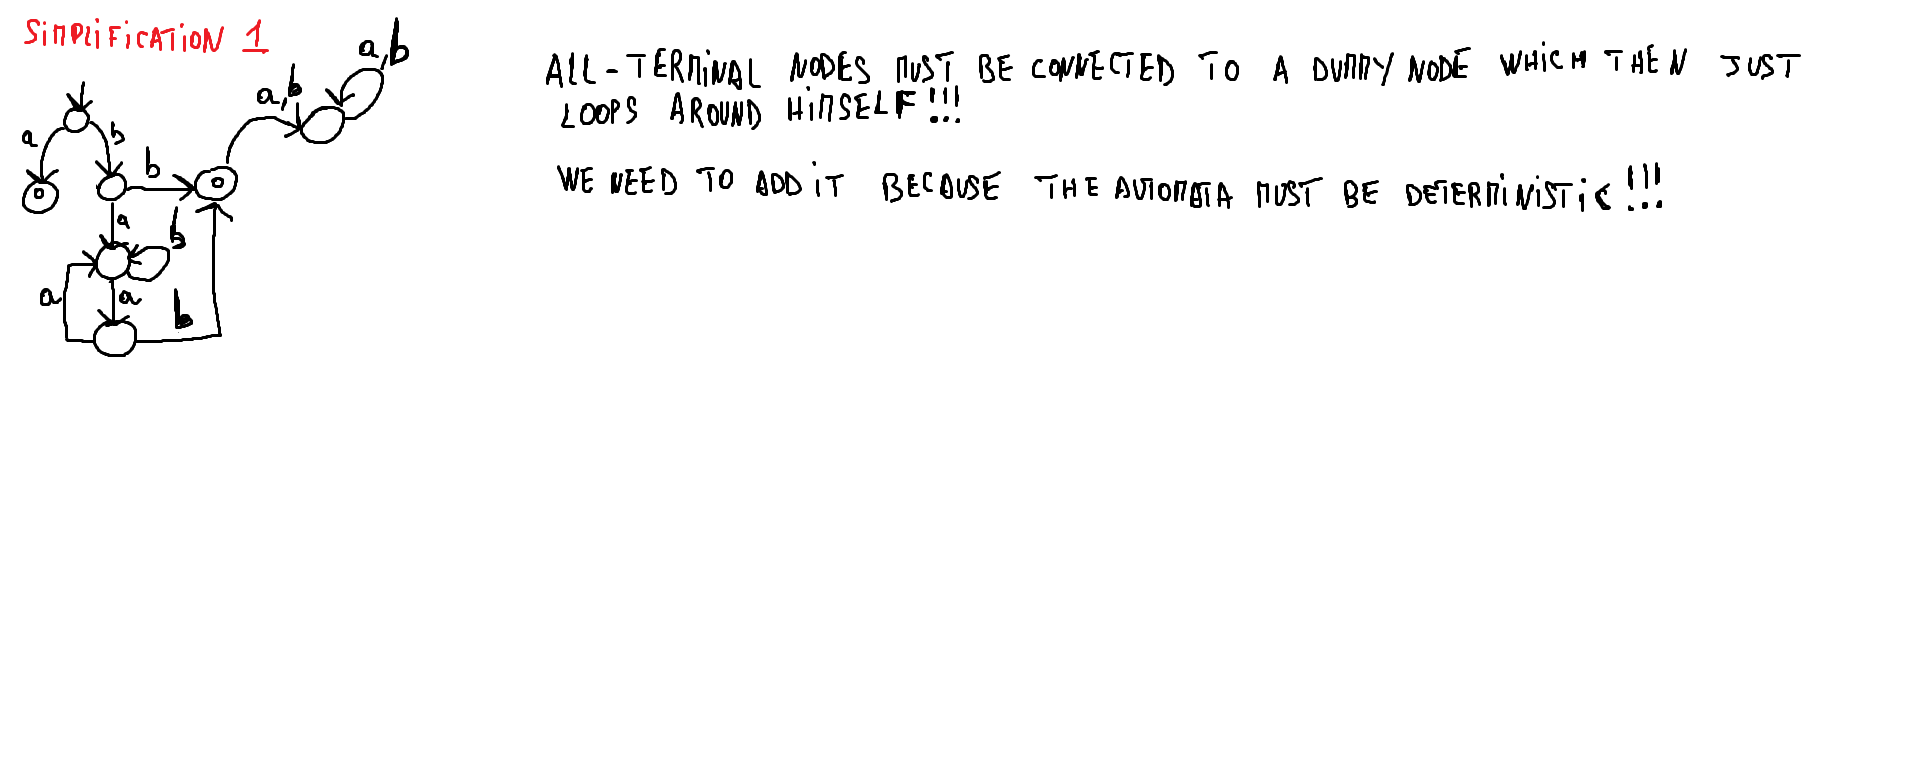 SiMPLiFiCATiON 1
a,b
a,b
a
b
b
a
b
a
a
b
ALL-TERMiNAL NODES MUST BE CONNECTED TO A DUMMY NODE WHiCH THEN JUST
LOOPS AROUND HiMSELF!!!
WE NEED TO ADD iT BECAUSE THE AUTOMATA MUST BE DETERMiNiSTiC!!!